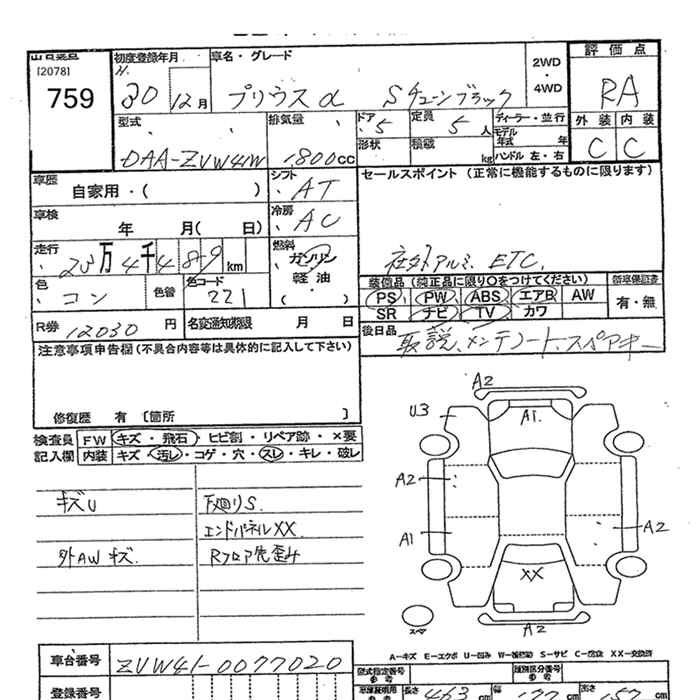 [2078]
759
初度登録年月
H.
30 12月
車名・グレード
プリウスα Sチューンブラック
2WD
・
4WD
評価点
RA
型式
DAA-ZVW41W
排気量
1800cc
ドア
5
定員
5人
形状
積載
kg
ディーラー・並行
モデル年式 年
ハンドル 左・右
外装 内装
C C
車歴
自家用・( )
シフト
AT
車検
年 月( 日)
冷房
AC
走行
23万4千489km
燃料
ガソリン
軽油
( ・ )
色
コン
色替
色コード
221
R券 12030円
名変通知期限 月 日
セールスポイント (正常に機能するものに限ります)
社外アルミ ETC.
装備品 (純正品に限り○をつけてください)
PS PW ABS エアB AW
SR ナビ TV カワ
新車保証書
有・無
後日品
取説、メンテノート、スペアキー
注意事項申告欄(不具合内容等は具体的に記入して下さい)
修復歴 有 [箇所 ]
検査員記入欄
FW キズ・飛石・ヒビ割・リペア跡・×要
内装 キズ・汚レ・コゲ・穴・スレ・キレ・破レ
キズU
下廻りS
エンドパネルXX
外AWキズ
Rフロア先歪み
A2
U3
A1
A2
A1
A2
XX
A2
スペア
A-キズ E-エクボ U-凹み W-補修跡 S-サビ C-腐食 XX-交換済
車台番号
ZVW41-0077020
登録番号
型式指定番号
参考
類別区分番号
参考
長さ
463
cm
幅
177
cm
高さ
157
cm